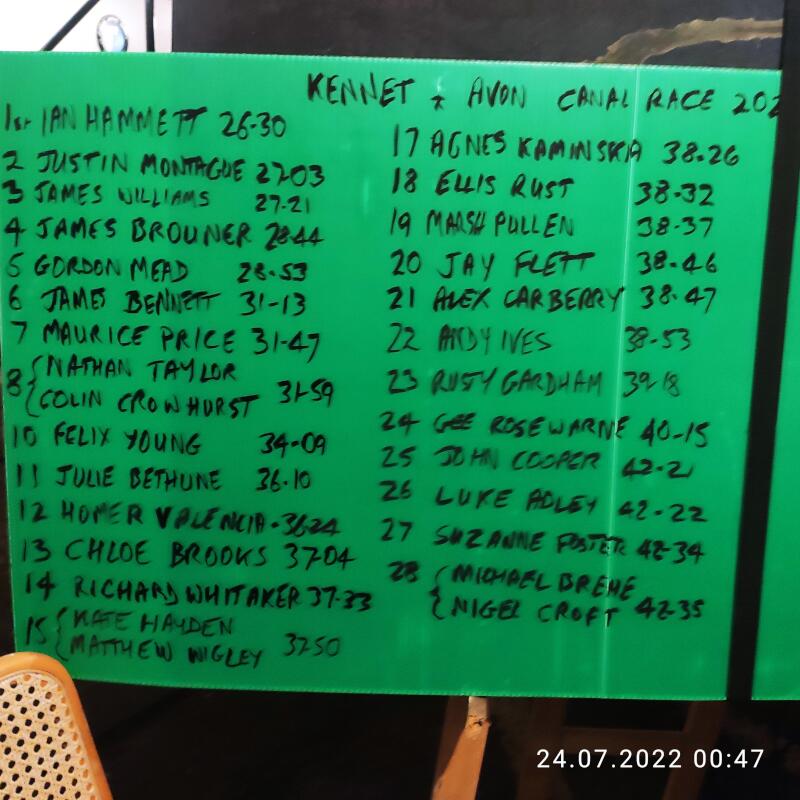 KENNET & AVON CANAL RACE 202
1st IAN HAMMETT 26-30
2 JUSTIN MONTAGUE 27-03
3 JAMES WILLIAMS 27-21
4 JAMES BROUNER 28-44
5 GORDON MEAD 28-53
6 JAMES BENNETT 31-13
7 MAURICE PRICE 31-47
8 { NATHAN TAYLOR
COLIN CROWHURST 31-59
10 FELIX YOUNG 34-09
11 JULIE BETHUNE 36-10
12 HOMER VALENCIA - 36-24
13 CHLOE BROOKS 37-04
14 RICHARD WHITAKER 37-33
15 { KATE HAYDEN
MATTHEW WIGLEY 37-50
17 AGNES KAMINSKA 38-26
18 ELLIS RUST 38-32
19 MARSH PULLEN 38-37
20 JAY FLETT 38-46
21 ALEX CARBERRY 38-47
22 ANDY IVES 38-53
23 RUSTY GARDHAM 39-18
24 GEE ROSEWARNE 40-15
25 JOHN COOPER 42-21
26 LUKE ADLEY 42-22
27 SUZANNE FOSTER 42-34
28 { MICHAEL BREHE
NIGEL CROFT 42-35
24.07.2022 00:47